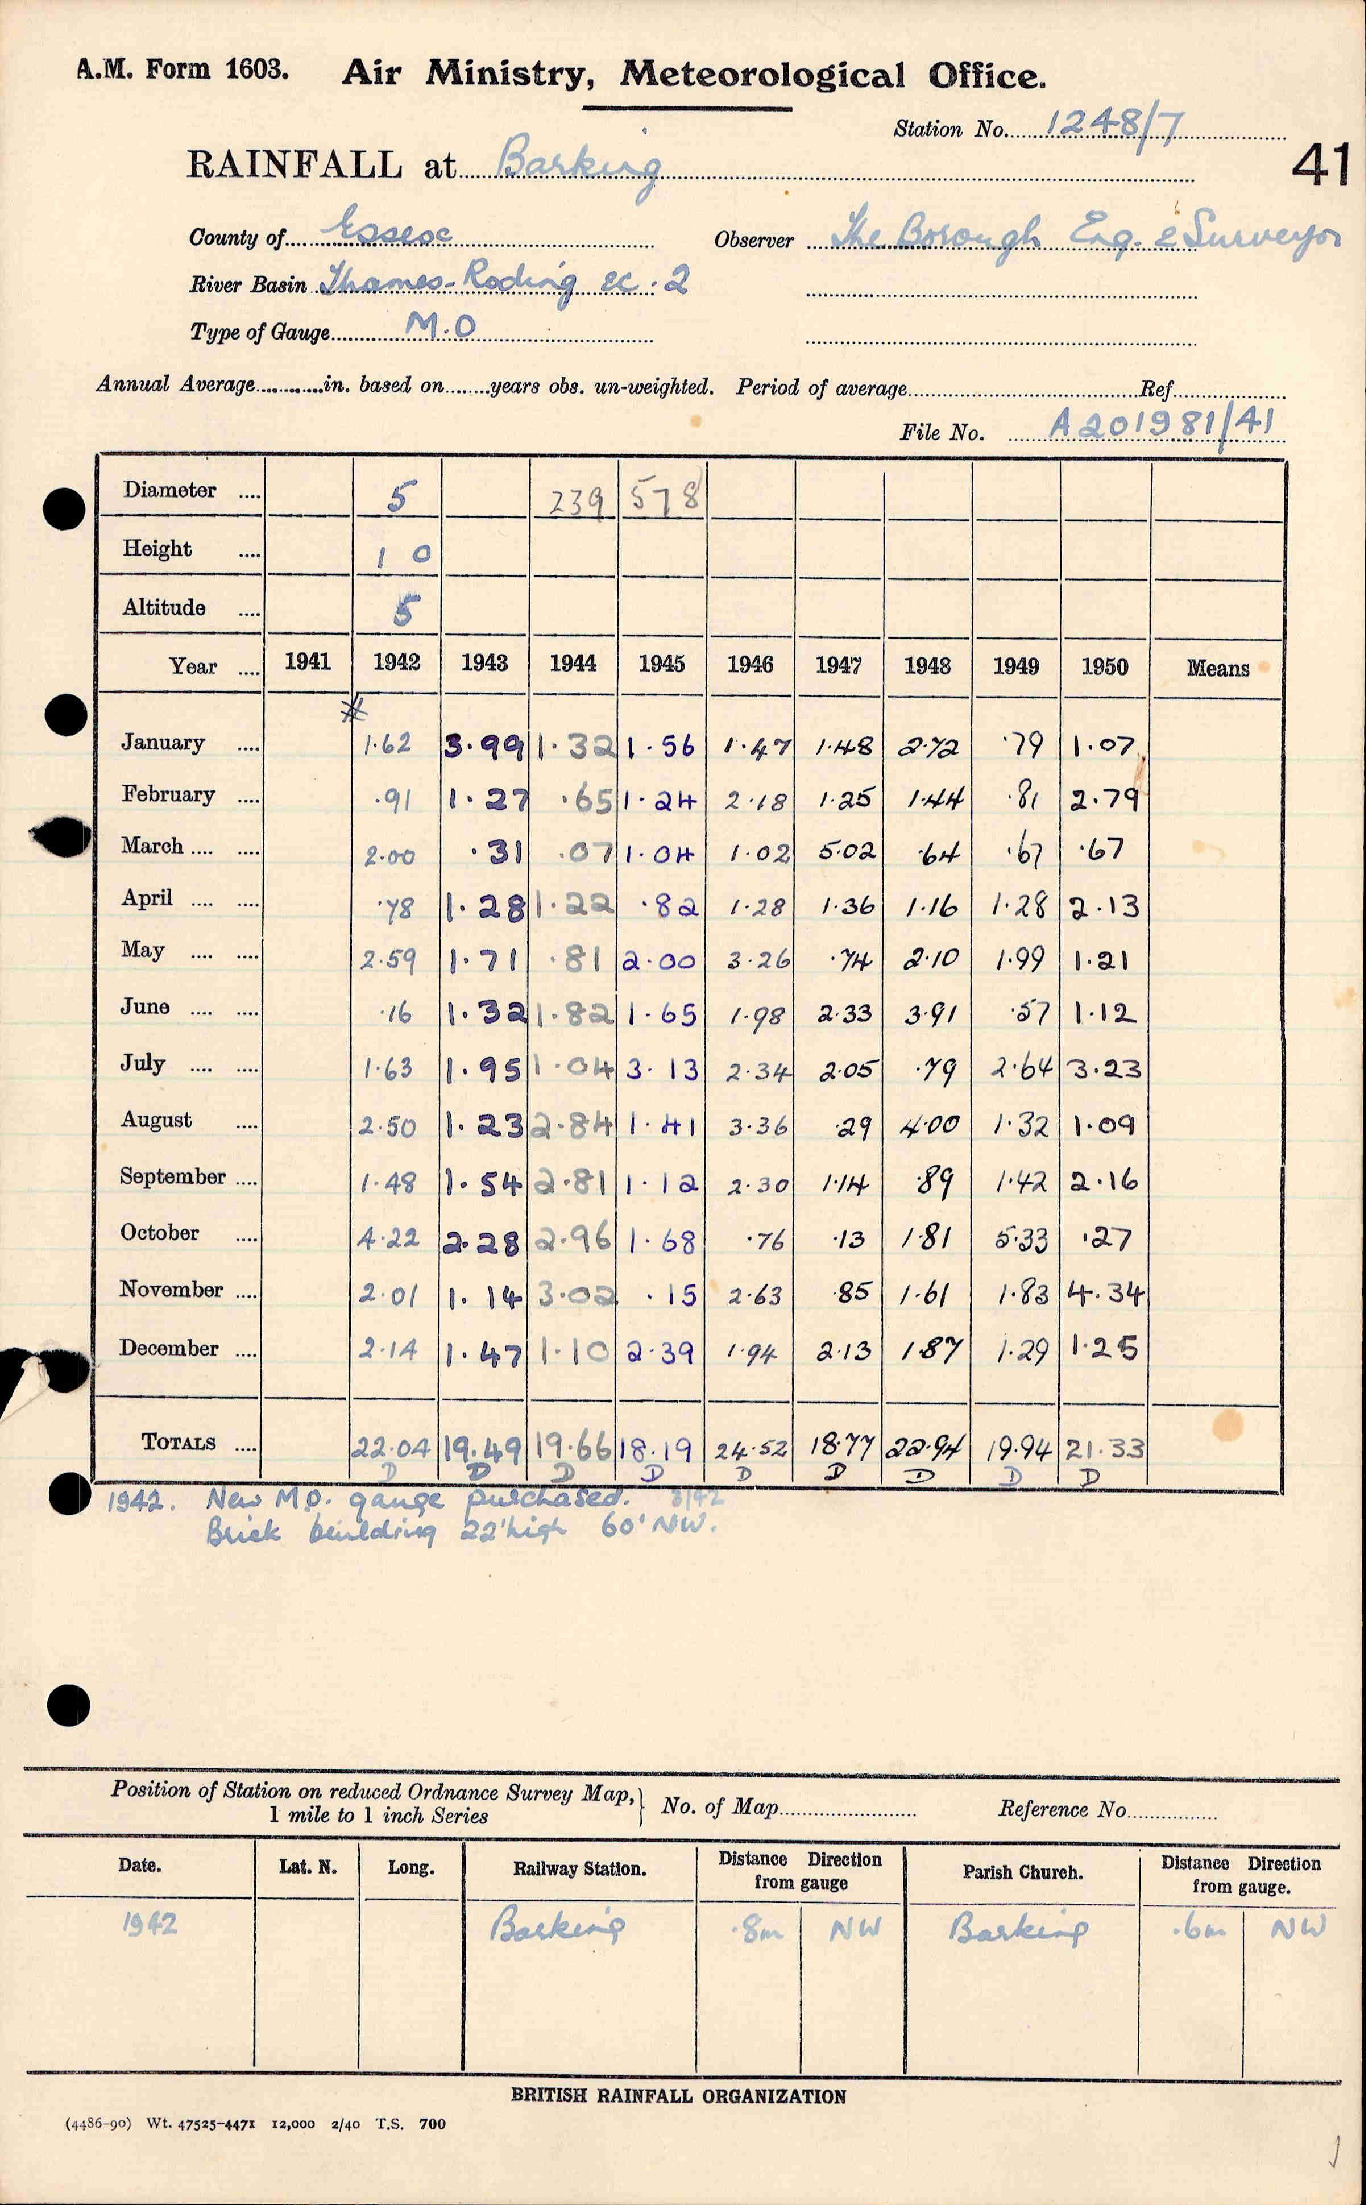 A.M. Form 1603. Air Ministry, Meteorological Office.
Station No. 1248/7
RAINFALL at Barking
41
County of Essex Observer The Borough Eng. & Surveyor
River Basin Thames-Roding ec. 2
Type of Gauge M.O
Annual Average in. based on years obs. un-weighted. Period of average Ref
File No. A201981/41
Diameter .... 5 239 578
Height .... 1 0
Altitude .... 5
Year .... 1941 1942 1943 1944 1945 1946 1947 1948 1949 1950 Means
January .... 1.62 3.99 1.32 1.56 1.47 1.48 2.72 .79 1.07
February .... .91 1.27 .65 1.24 2.18 1.25 1.44 .81 2.79
March .... .... 2.00 .31 .07 1.04 1.02 5.02 .64 .67 .67
April .... .... .78 1.28 1.22 .82 1.28 1.36 1.16 1.28 2.13
May .... .... 2.59 1.71 .81 2.00 3.26 .74 2.10 1.99 1.21
June .... .... .16 1.32 1.82 1.65 1.98 2.33 3.91 .57 1.12
July .... .... 1.63 1.95 1.04 3.13 2.34 2.05 .79 2.64 3.23
August .... 2.50 1.23 2.84 1.41 3.36 .29 4.00 1.32 1.09
September .... 1.48 1.54 2.81 1.12 2.30 1.14 .89 1.42 2.16
October .... 4.22 2.28 2.96 1.68 .76 .13 1.81 5.33 .27
November .... 2.01 1.14 3.02 .15 2.63 .85 1.61 1.83 4.34
December .... 2.14 1.47 1.10 2.39 1.94 2.13 1.87 1.29 1.25
TOTALS .... 22.04 19.49 19.66 18.19 24.52 18.77 22.94 19.94 21.33
D D D D D D D D D
1942. New M.O. gauge purchased. 3/42
Brick building 22' high 60' NW.
Position of Station on reduced Ordnance Survey Map, 1 mile to 1 inch Series } No. of Map Reference No
Date. Lat. N. Long. Railway Station. Distance Direction from gauge Parish Church. Distance Direction from gauge.
1942 Barking .8m NW Barking .6m NW
BRITISH RAINFALL ORGANIZATION
(4486-90) Wt. 47525-4471 12,000 2/40 T.S. 700